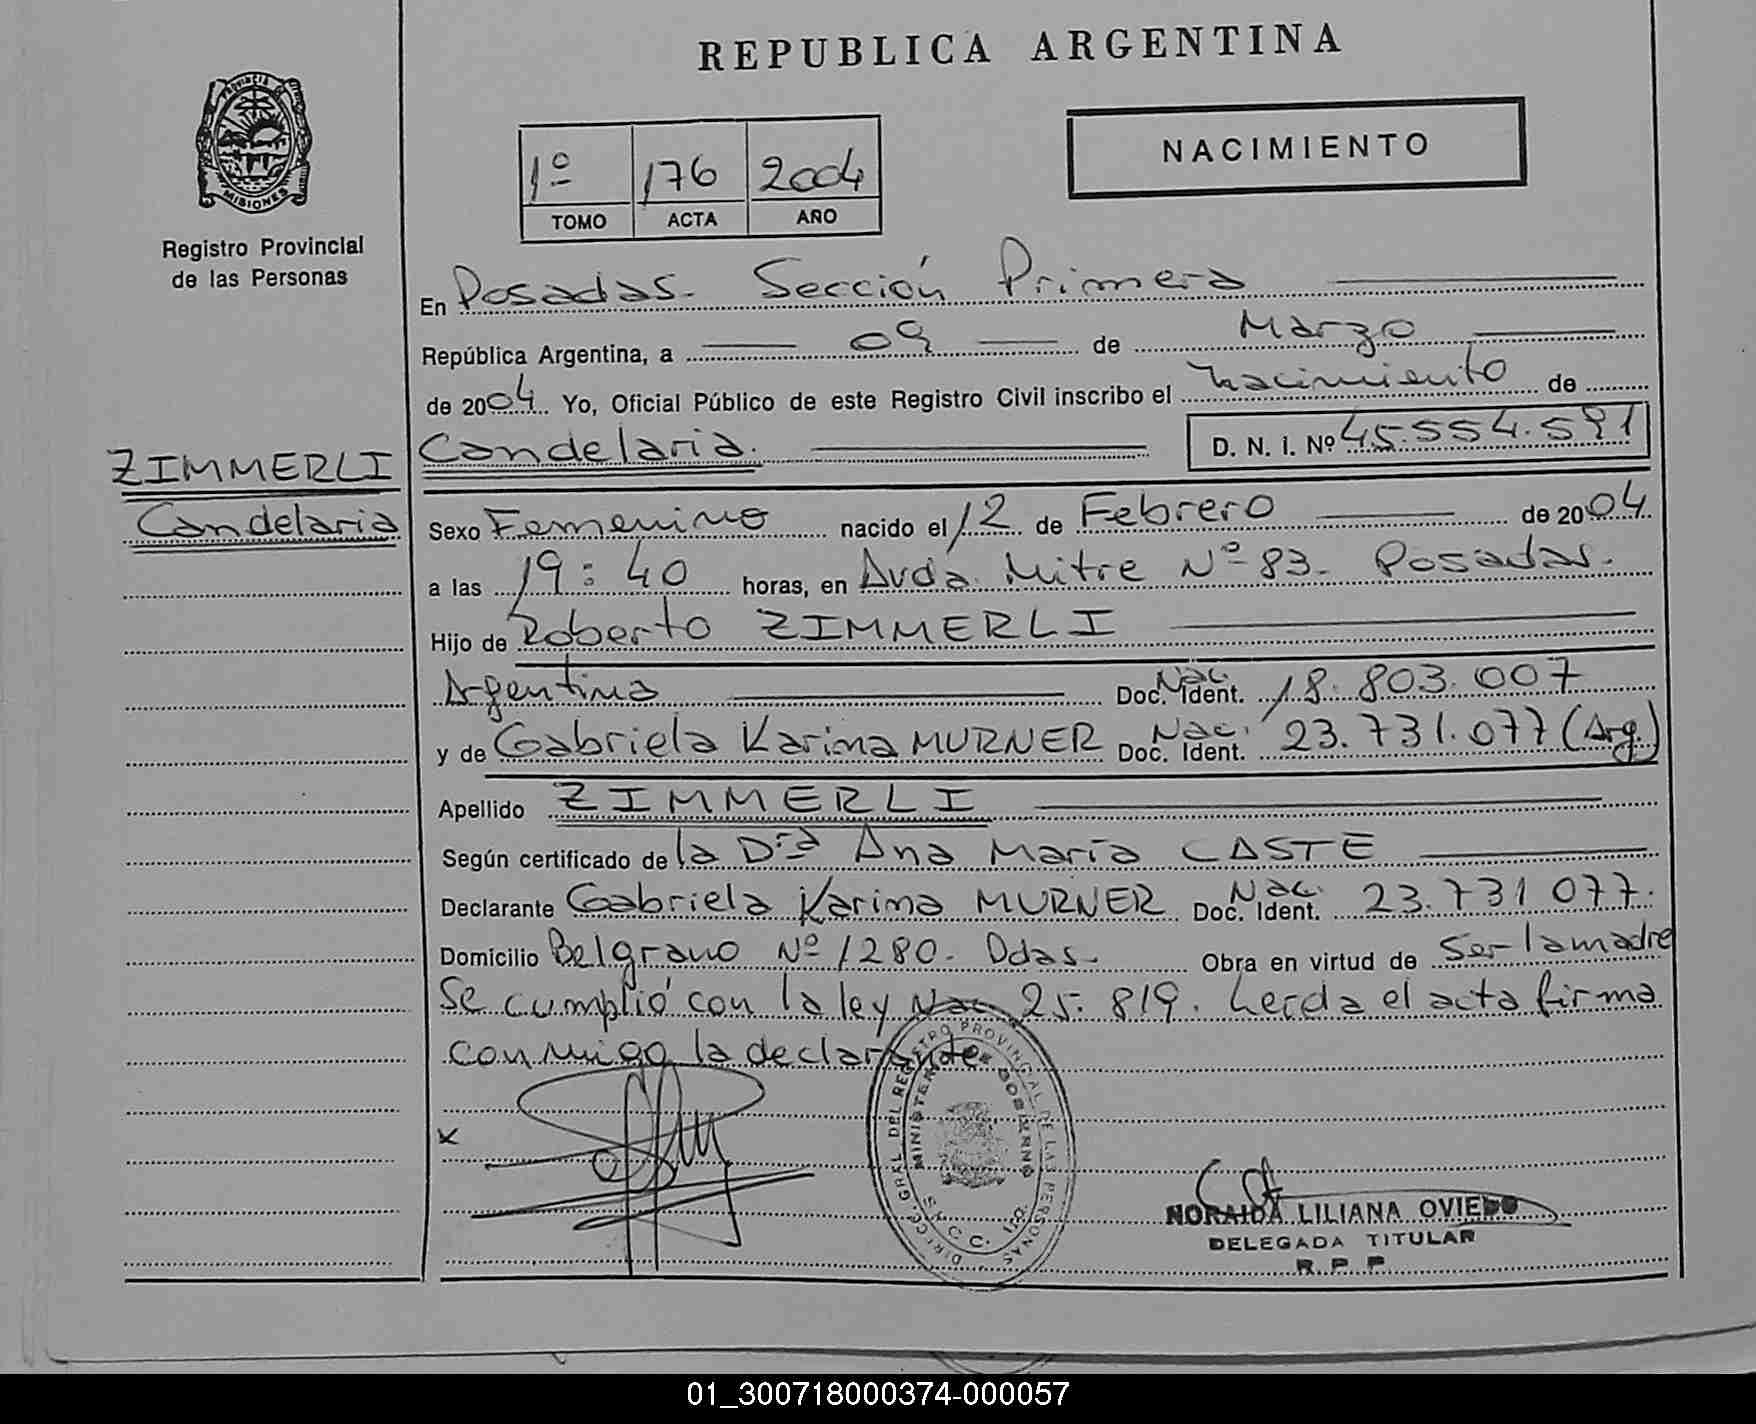 REPUBLICA ARGENTINA
PROVINCIA DE
MISIONES
Registro Provincial
de las Personas
1º 176 2004
TOMO ACTA AÑO
NACIMIENTO
En Posadas. Sección Primera
República Argentina, a 09 de Marzo
de 2004 Yo, Oficial Público de este Registro Civil inscribo el Nacimiento de
Candelaria. D. N. i. Nº 45.554.591
ZIMMERLI
Candelaria
Sexo Femenino nacido el 12 de Febrero de 2004
a las 19:40 horas, en Avda. Mitre Nº 83. Posadas.
Hijo de Roberto ZIMMERLI
Argentino Doc. Nac. Ident. 18.803.007
y de Gabriela Karina MURNER Doc. Nac. Ident. 23.731.077 (Arg.)
Apellido ZIMMERLI
Según certificado de la Dra Ana María CASTE
Declarante Gabriela Karina MURNER Doc. Nac. Ident. 23.731 077.
Domicilio Belgrano Nº 1280. Pdas. Obra en virtud de Ser la madre
Se cumplió con la ley Nac 25.819. Leida el acta firma
conmigo la declarante.
x
DIRECC. GRAL. DEL REGISTRO PROVINCIAL DE LAS PERSONAS
MINISTERIO DE GOBIERNO
NORAIDA LILIANA OVIEDO
DELEGADA TITULAR
R. P. P.
01_300718000374-000057